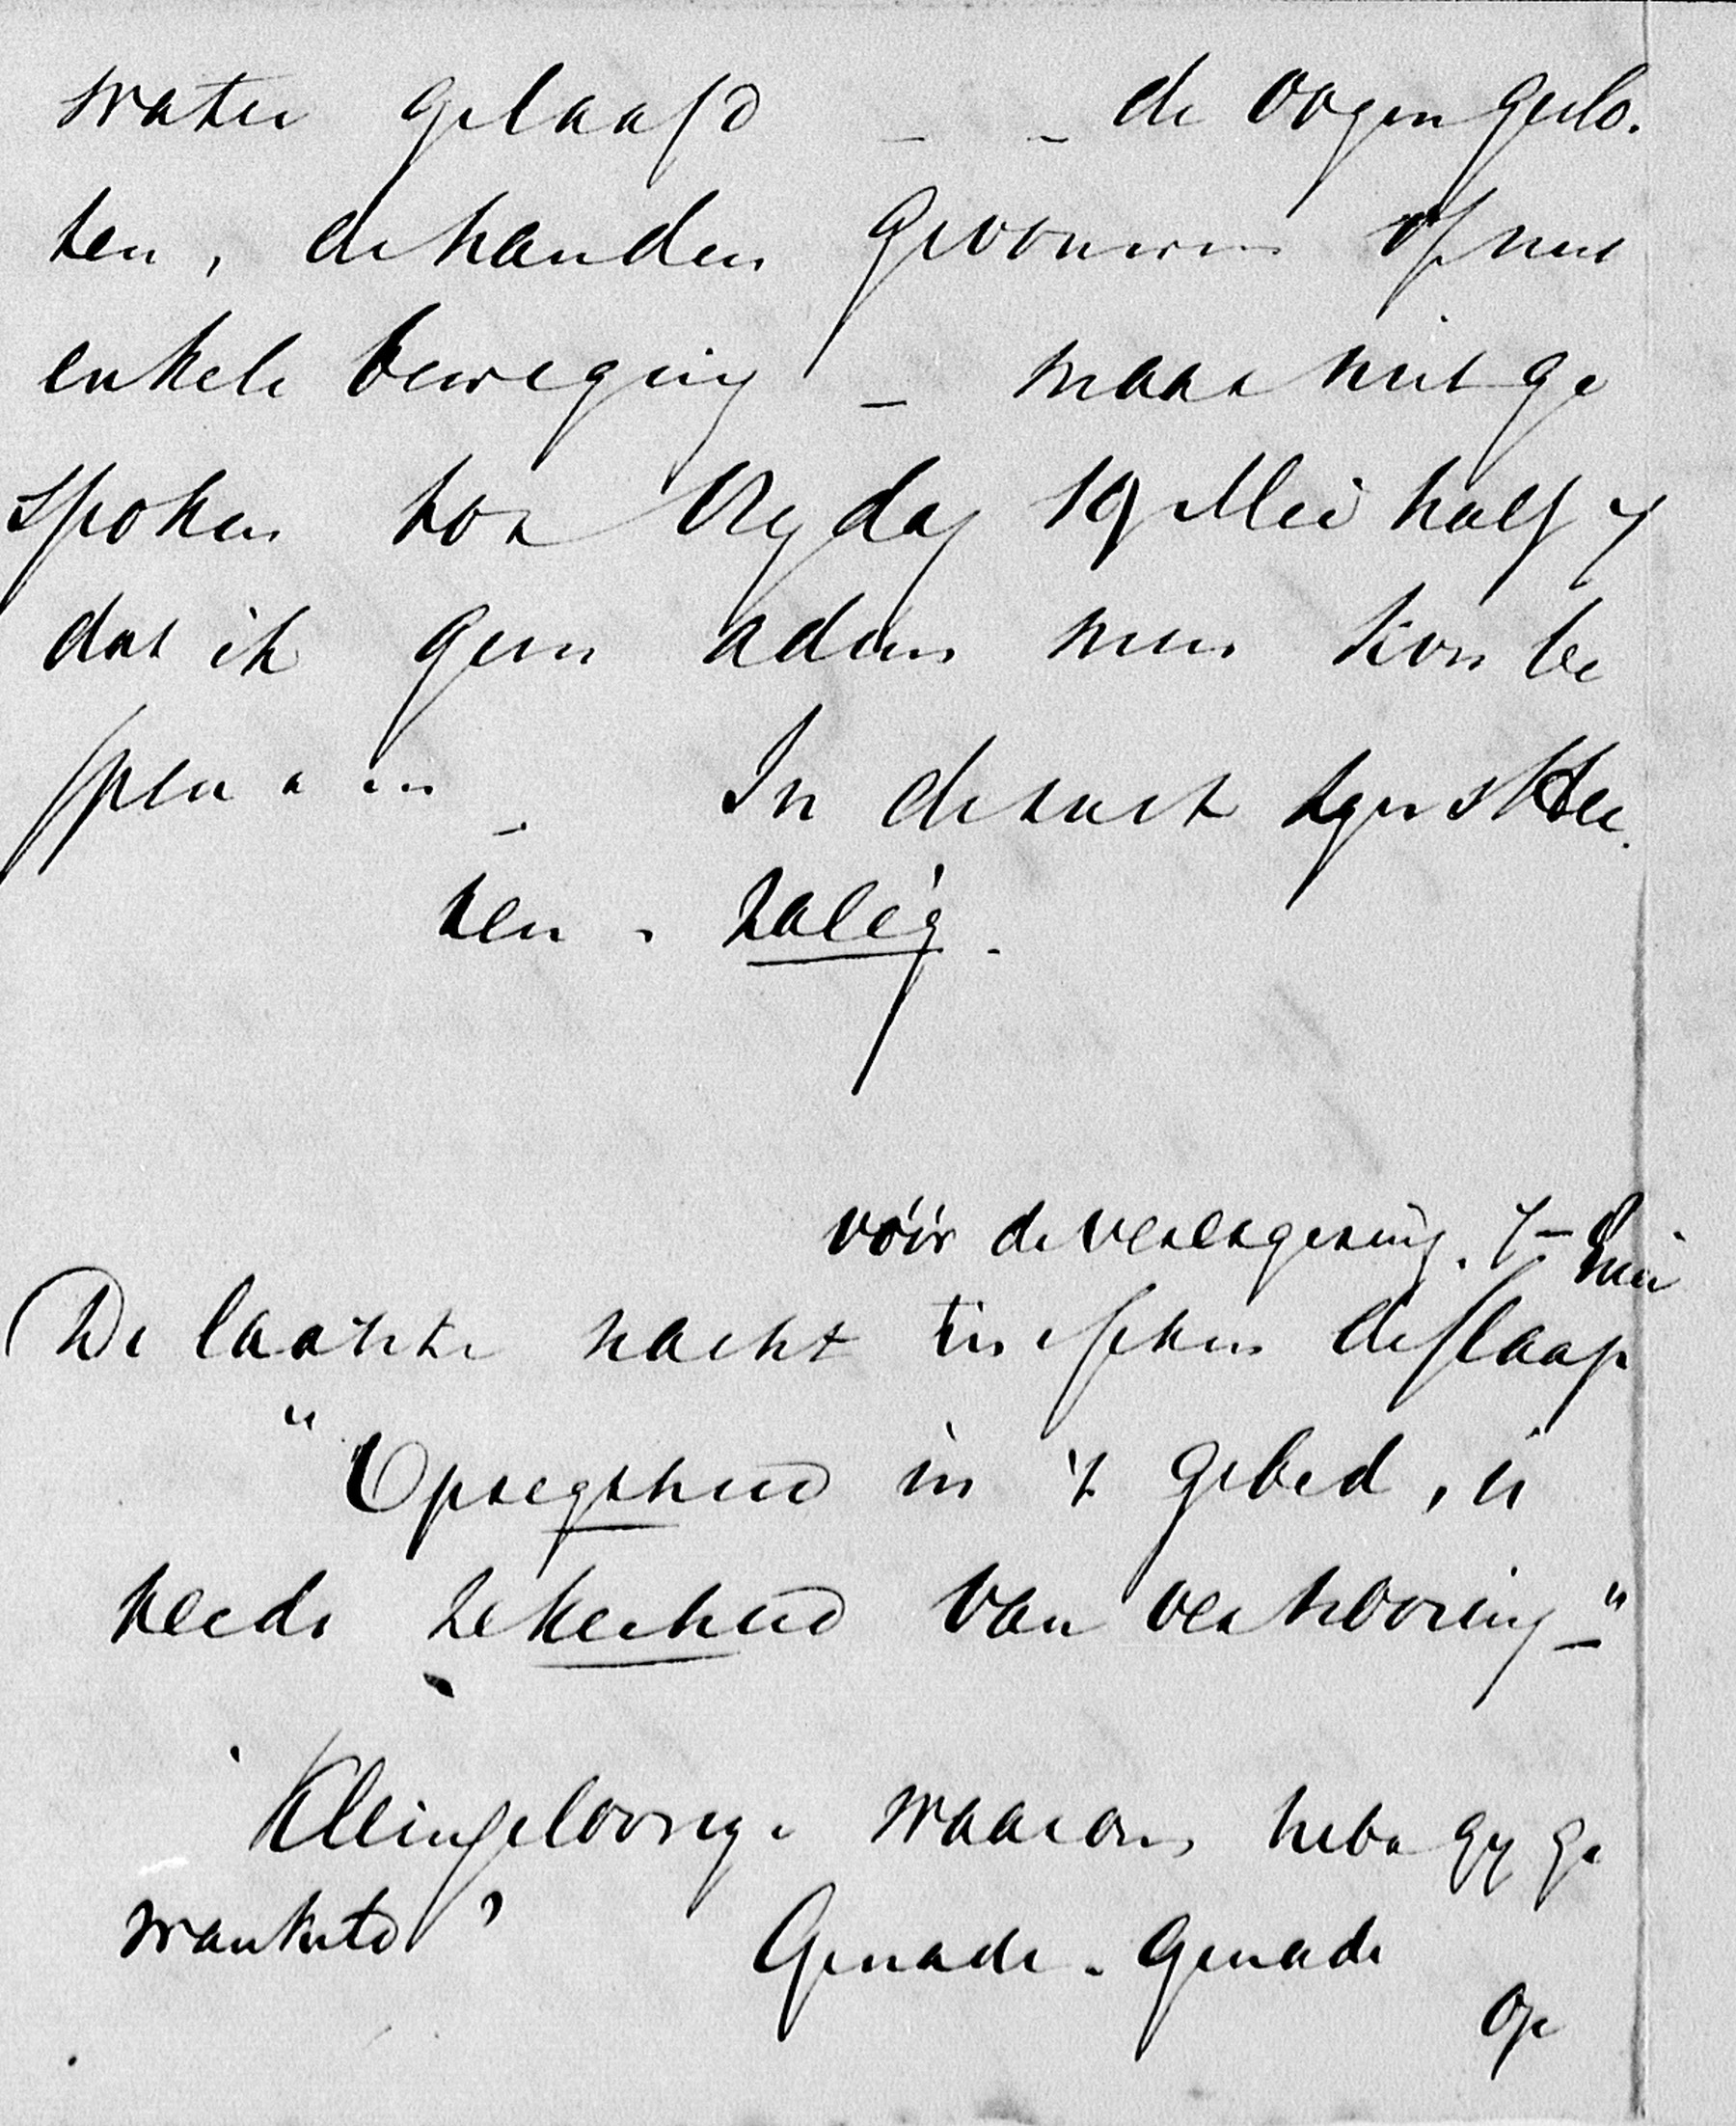 water gelaafd _ _ de oogen geslo-
ten, de handen gevouwen of met
enkele beweging _ maar niet ge
sproken tot Vrydag 19 Mei half 7
dat ik geen adem meer kon be
speuren _ In de rust zyns Hee-
ren . zalig .
vóór de verergering. 7- Mei
De laatste nacht tusschen de slaap
"Opregtheid in 't gebed, is
reeds zekerheid van verhooring _"
Kleingeloovige waarom hebt gy ge
wankeld? Genade - Genade
op